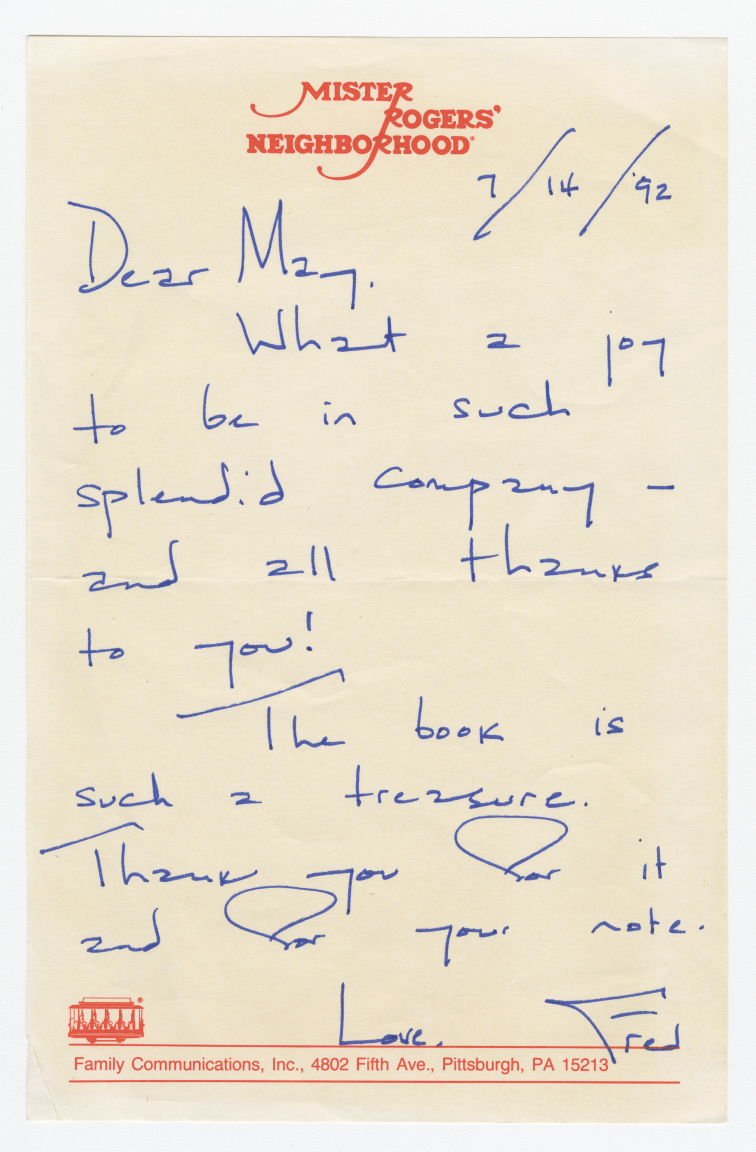 MISTER
ROGERS'
NEIGHBORHOOD®
7/14/'92
Dear May,
What a joy
to be in such
splendid company –
and all thanks
to you!
The book is
such a treasure.
Thank you for it
and for your note.
Love,
Fred
®
Family Communications, Inc., 4802 Fifth Ave., Pittsburgh, PA 15213